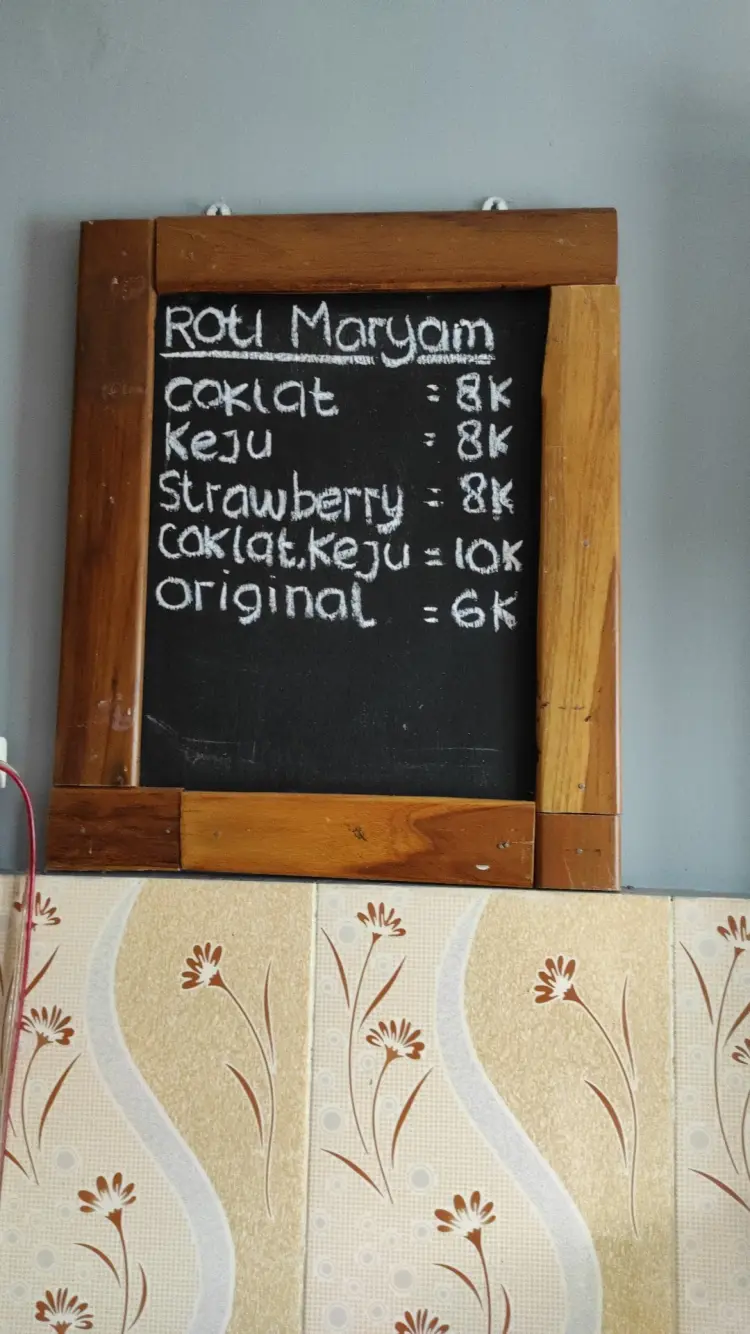 Roti Maryam
Coklat = 8K
Keju = 8K
Strawberry = 8K
Coklat, Keju = 10K
Original = 6K